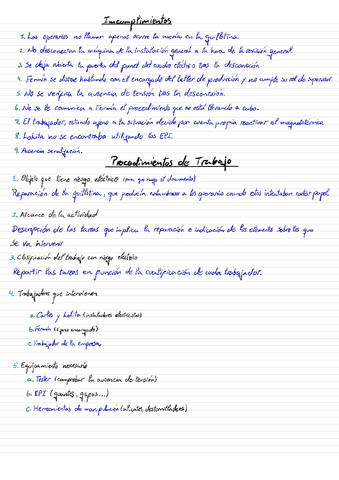 Incumplimientos
1. Los operarios no llaman apenas ocurre la avería en la guillotina.
2. No desconectan la máquina de la instalación general a la hora de la revisión general
3. Se deja abierta la puerta del panel del cuadro eléctrico tras la desconexión
4. Fermín se distrae hablando con el encargado del taller de producción y no cumple su rol de supervisor.
5. No se verifica la ausencia de tensión tras la desconexión.
6. No se le comunica a Fermín el procedimiento que se está llevando a cabo.
8. El trabajador, estando ajeno a la situación decide por cuenta propia reactivar el magnetotérmico
7. Lolita no se encontraba utilizando los EPI.
9. Ausencia señalización.
Procedimientos de Trabajo
1. Objeto que tiene riesgo eléctrico
Reparación de la guillotina, que producía calambrazos a los operarios cuando ellos intentaban cortar papel.
2. Alcance de la actividad
Descripción de las tareas que implica la reparación e indicación de los elementos sobre los que
se va intervenir
3. Clasificación del trabajo con riesgo eléctrico
Repartir las tareas en función de la cualificación de cada trabajador.
4. Trabajadores que intervienen
a. Carlos y Lolita (instaladores electricistas)
b. Fermín (encargado)
c. Trabajador de la empresa
5. Equipamiento necesario
a. Tester (comprobar la ausencia de tensión)
b. EPI (guantes, gafas...)
c. Herramientas de manipulación (alicates, destornilladores)